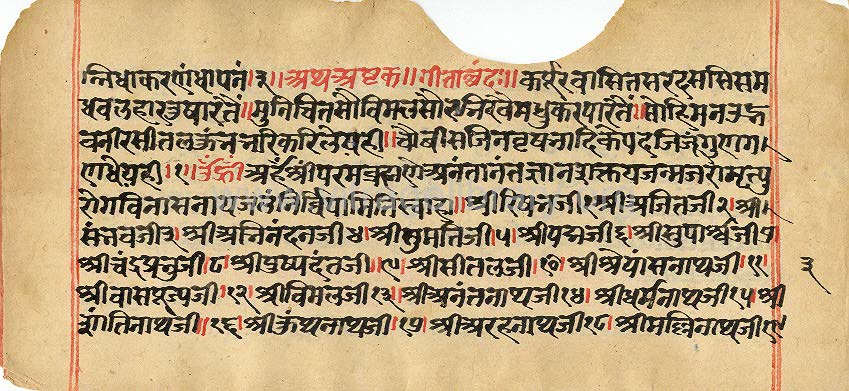 न्निधाकरणंधापनं।३॥अथअष्टक॥गीताछंद॥कर्पूरवासितसरदससिसम
धवलहारतुषारतै॥मुनिचितसौविमलसौरनजिरवैमधुकरपारतै॥सोहिमन
वनीरसीतलकंनकारिकरिलेयही॥चौबीसजिनवृषनादिकेपदजिजैगुणग
णधेयही।१।ॐह्रींअर्हंश्रींपरमब्रह्मणेअनंतानंतज्ञानशक्तयजन्मजरामृत्यु
रोगविनासनायजलंनिर्वपामितिस्वाहा॥श्रीरिषनजी१श्रीअजितजी२।श्री
संनवजी३।श्रीअनिनंदनजी४।श्रीसुमतिजी।५।श्रीपद्मजी६।श्रीसुपार्श्वजी७
श्रीचंद्रप्रनुजी।८।श्रीपुष्पदंतजी॥९।श्रीसीतलजी।१०।श्रीश्रेयांसनाथजी।११
श्रीवासपूज्यजी।१२।श्रीविमलजी१३।श्रीअनंतनाथजी१४।श्रीधर्मनाथजी१५।श्री
शांतिनाथजी॥१६।श्रीकुंथनाथजी।१७।श्रीअरहनाथजी१८।श्रीमल्लिनाथजी१९
३